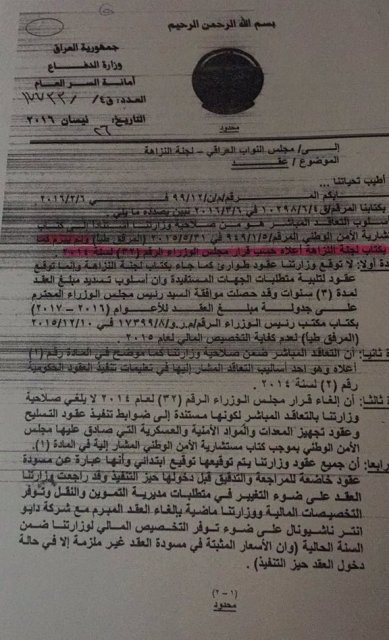 بسم الله الرحمن الرحيم
جمهورية العراق
وزارة الدفاع
أمانة السر العام
العدد: ق٤/
التاريخ: ٢٦ نيسان ٢٠١٦
محدود
إلى / مجلس النواب العراقي - لجنة النزاهة
الموضوع / عقد
أطيب تحياتنا ...
م/ن/٩٩/١٢ في ٢٠١٦/٢/٦
٢٠١٦/٣/٦ نبين بصدده ما يلي .
أسلوب التعاقد المباشر هو من صلاحية وزارتنا
شارية الأمن الوطني م/١/٥/٩١٩ في ٢٠١٥/٥/٣١ (المرفق طيا)
بكتاب لجنة النزاهة أعلاه حسب قرار مجلس الوزراء الرقم (٣٢) لسنة ٢٠١٤
دة أولا: لا توقع وزارتنا عقود طوارئ كما جاء بكتاب لجنة النزاهة وإنما توقع
عقود لتلبية متطلبات الجهات المستفيدة وإن أسلوب تسديد مبلغ العقد
لمدة (٣) سنوات وقد حصلت موافقة السيد رئيس مجلس الوزراء المحترم
على جدولة مبلغ العقد للأعوام (٢٠١٦ - ٢٠١٧)
بكتاب مكتب رئيس الوزراء الرقم/م.ر.و/١٧٣٩٩/٨ في ٢٠١٥/١٢/١٠
(المرفق طيا) لعدم كفاية التخصيص المالي لعام ٢٠١٥ .
ثانيا: أن التعاقد المباشر ضمن صلاحية وزارتنا كما موضح في المادة رقم (١)
أعلاه وهو أحد أساليب التعاقد المشار إليها في تعليمات تنفيذ العقود الحكومية
رقم (٢) لسنة ٢٠١٤ .
ثالثا: إن إلغاء قرار مجلس الوزراء الرقم (٣٢) لعام ٢٠١٤ لا يلغي صلاحية
وزارتنا بالتعاقد المباشر لكونها مستندة إلى ضوابط تنفيذ عقود التسليح
وعقود تجهيز المعدات والمواد الأمنية والعسكرية التي صادق عليها مجلس
الأمن الوطني بموجب كتاب مستشارية الأمن الوطني المشار إليه في المادة (١).
رابعا: أن جميع عقود وزارتنا يتم توقيعها توقيع ابتدائي وأنها عبارة عن مسودة
عقود خاضعة للمراجعة والتدقيق قبل دخولها حيز التنفيذ وقد راجعت وزارتنا
العقد على ضوء التغيير في متطلبات مديرية التموين والنقل وتوفر
التخصيصات المالية ووزارتنا ماضية بإلغاء العقد المبرم مع شركة دايو
انتر ناشيونال على ضوء توفر التخصيص المالي لوزارتنا ضمن
السنة الحالية (وان الأسعار المثبتة في مسودة العقد غير ملزمة إلا في حالة
دخول العقد حيز التنفيذ) .
(١-٢)
محدود